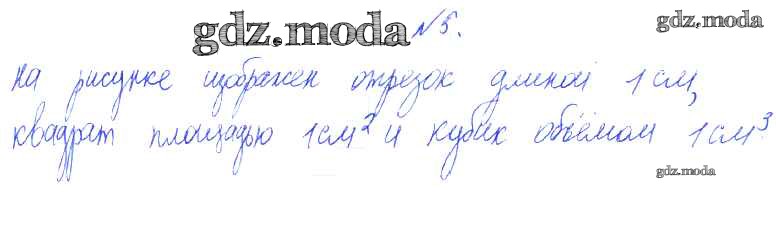 gdz.moda №5. gdz.moda
На рисунке изображен отрезок длиной 1 см,
квадрат площадью 1 см² и кубик объёмом 1 см³.
gdz.moda